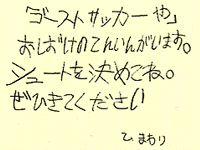 「ゴーストサッカーや」
おばけのてんいんがいます。
シュートを決めてね。
ぜひきてください
ひまわり